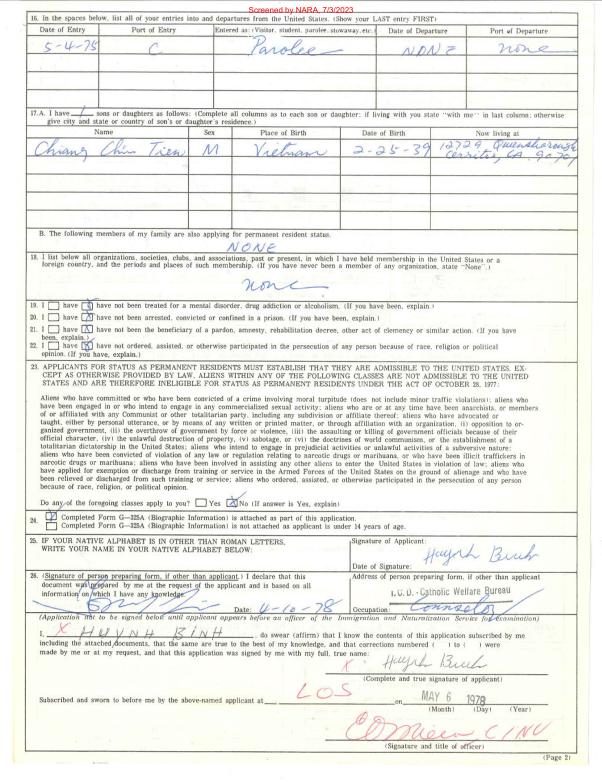 Screened by NARA, 7/3/2023
16. In the spaces below, list all of your entries into and departures from the United States. (Show your LAST entry FIRST)
Date of Entry Port of Entry Entered as: (Visitor, student, parolee, stowaway, etc.) Date of Departure Port of Departure
5-4-75 C Parolee NONE none
17.A. I have 1 sons or daughters as follows: (Complete all columns as to each son or daughter; if living with you state "with me" in last column; otherwise
give city and state or country of son's or daughter's residence.)
Name Sex Place of Birth Date of Birth Now living at
Chiang Chin Tien M Vietnam 2-25-39 12729 Queensborough
Cerritos, CA. 90701
B. The following members of my family are also applying for permanent resident status.
NONE
18. I list below all organizations, societies, clubs, and associations, past or present, in which I have held membership in the United States or a
foreign country, and the periods and places of such membership. (If you have never been a member of any organization, state "None".)
none
19. I have have not been treated for a mental disorder, drug addiction or alcoholism. (If you have been, explain.)
20. I have have not been arrested, convicted or confined in a prison. (If you have been, explain.)
21. I have have not been the beneficiary of a pardon, amnesty, rehabilitation decree, other act of clemency or similar action. (If you have
been, explain.)
22. I have have not ordered, assisted, or otherwise participated in the persecution of any person because of race, religion or political
opinion. (If you have, explain.)
23. APPLICANTS FOR STATUS AS PERMANENT RESIDENTS MUST ESTABLISH THAT THEY ARE ADMISSIBLE TO THE UNITED STATES. EX-
CEPT AS OTHERWISE PROVIDED BY LAW, ALIENS WITHIN ANY OF THE FOLLOWING CLASSES ARE NOT ADMISSIBLE TO THE UNITED
STATES AND ARE THEREFORE INELIGIBLE FOR STATUS AS PERMANENT RESIDENTS UNDER THE ACT OF OCTOBER 28, 1977:
Aliens who have committed or who have been convicted of a crime involving moral turpitude (does not include minor traffic violations); aliens who
have been engaged in or who intend to engage in any commercialized sexual activity; aliens who are or at any time have been anarchists, or members
of or affiliated with any Communist or other totalitarian party, including any subdivision or affiliate thereof; aliens who have advocated or
taught, either by personal utterance, or by means of any written or printed matter, or through affiliation with an organization, (i) opposition to or-
ganized government, (ii) the overthrow of government by force or violence, (iii) the assaulting or killing of government officials because of their
official character, (iv) the unlawful destruction of property, (v) sabotage, or (vi) the doctrines of world communism, or the establishment of a
totalitarian dictatorship in the United States; aliens who intend to engage in prejudicial activities or unlawful activities of a subversive nature;
aliens who have been convicted of violation of any law or regulation relating to narcotic drugs or marihuana, or who have been illicit traffickers in
narcotic drugs or marihuana; aliens who have been involved in assisting any other aliens to enter the United States in violation of law; aliens who
have applied for exemption or discharge from training or service in the Armed Forces of the United States on the ground of alienage and who have
been relieved or discharged from such training or service; aliens who ordered, assisted, or otherwise participated in the persecution of any person
because of race, religion, or political opinion.
Do any of the foregoing classes apply to you? Yes No (If answer is Yes, explain)
24. Completed Form G-325A (Biographic Information) is attached as part of this application.
Completed Form G-325A (Biographic Information) is not attached as applicant is under 14 years of age.
25. IF YOUR NATIVE ALPHABET IS IN OTHER THAN ROMAN LETTERS,
WRITE YOUR NAME IN YOUR NATIVE ALPHABET BELOW:
Signature of Applicant:
Huynh Binh
Date of Signature:
26. (Signature of person preparing form, if other than applicant.) I declare that this
document was prepared by me at the request of the applicant and is based on all
information on which I have any knowledge.
Date: 4-10-78
Address of person preparing form, if other than applicant
Catholic Welfare Bureau
Occupation: Counselor
(Application not to be signed below until applicant appears before an officer of the Immigration and Naturalization Service for examination)
I, X HUYNH BINH, do swear (affirm) that I know the contents of this application subscribed by me
including the attached documents, that the same are true to the best of my knowledge, and that corrections numbered ( ) to ( ) were
made by me or at my request, and that this application was signed by me with my full, true name:
X Huynh Binh
(Complete and true signature of applicant)
Subscribed and sworn to before me by the above-named applicant at LOS on MAY 6 1978
(Month) (Day) (Year)
(Signature and title of officer)
(Page 2)